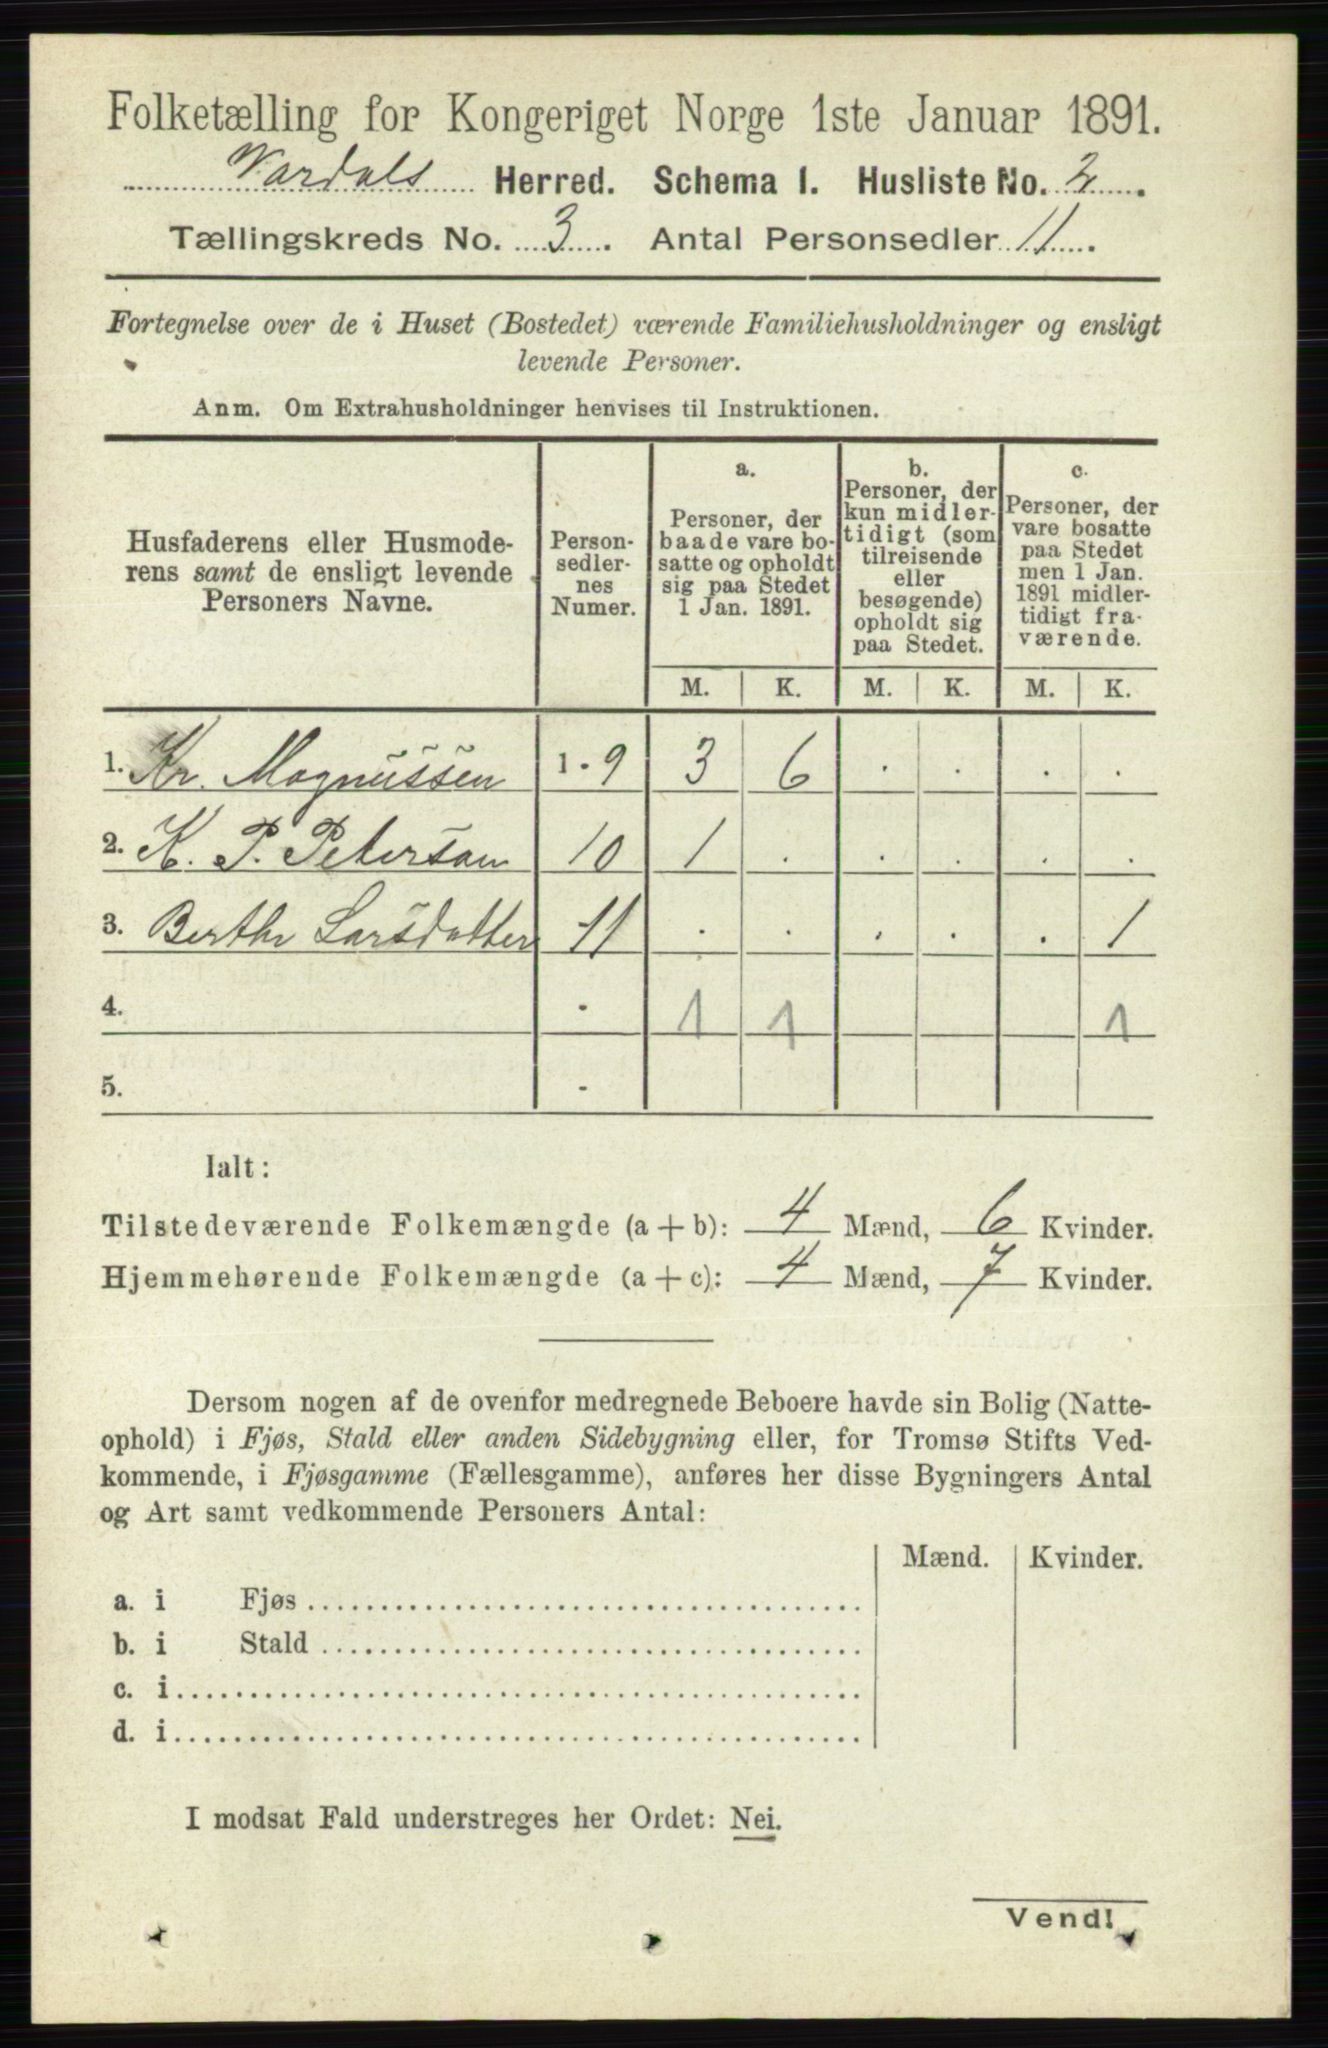 Folketælling for Kongeriget Norge 1ste Januar 1891.
Vardals Herred. Schema I. Husliste No. 2.
Tællingskreds No. 3. Antal Personsedler 11.
Fortegnelse over de i Huset (Bostedet) værende Familiehusholdninger og ensligt
levende Personer.
Anm. Om Extrahusholdninger henvises til Instruktionen.
Husfaderens eller Husmode-
rens samt de ensligt levende
Personers Navne.
Person-
sedler-
nes
Numer.
a.
Personer, der
baade vare bo-
satte og opholdt
sig paa Stedet
1 Jan. 1891.
b.
Personer, der
kun midler-
tidigt (som
tilreisende
eller
besøgende)
opholdt sig
paa Stedet.
c.
Personer, der
vare bosatte
paa Stedet
men 1 Jan.
1891 midler-
tidigt fra-
værende.
M. K. M. K. M. K.
1. Kr. Magnussen 1-9 3 6 . . . .
2. K. P. Petersen 10 1 . . . . .
3. Berthe Larsdatter 11 . . . . . 1
4. - 1 1 1
5. -
Ialt:
Tilstedeværende Folkemængde (a + b): 4 Mænd, 6 Kvinder.
Hjemmehørende Folkemængde (a + c): 4 Mænd, 7 Kvinder.
Dersom nogen af de ovenfor medregnede Beboere havde sin Bolig (Natte-
ophold) i Fjøs, Stald eller anden Sidebygning eller, for Tromsø Stifts Ved-
kommende, i Fjøsgamme (Fællesgamme), anføres her disse Bygningers Antal
og Art samt vedkommende Personers Antal:
Mænd. Kvinder.
a. i Fjøs
b. i Stald
c. i
d. i
I modsat Fald understreges her Ordet: Nei.
Vend!